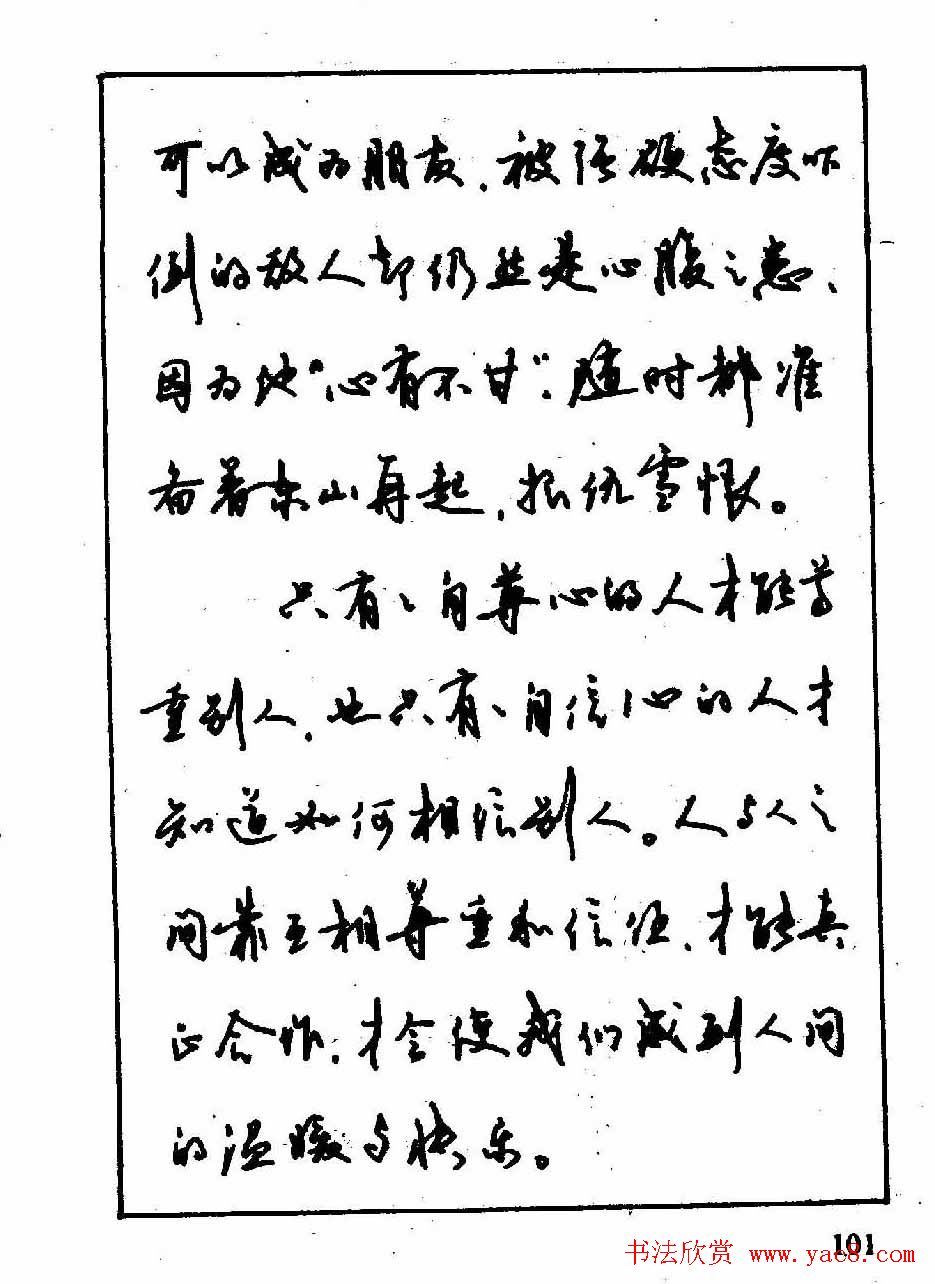 可以成为朋友，被强硬态度吓
倒的敌人却仍然是心腹之患、
因为他“心有不甘”，随时都准
备着东山再起，报仇雪恨。
只有有自尊心的人才能尊
重别人，也只有有自信心的人才
知道如何相信别人。人与人之
间靠互相尊重和信任，才能真
正合作，才会使我们感到人间
的温暖与快乐。
101
书法欣赏 www.yac8.com